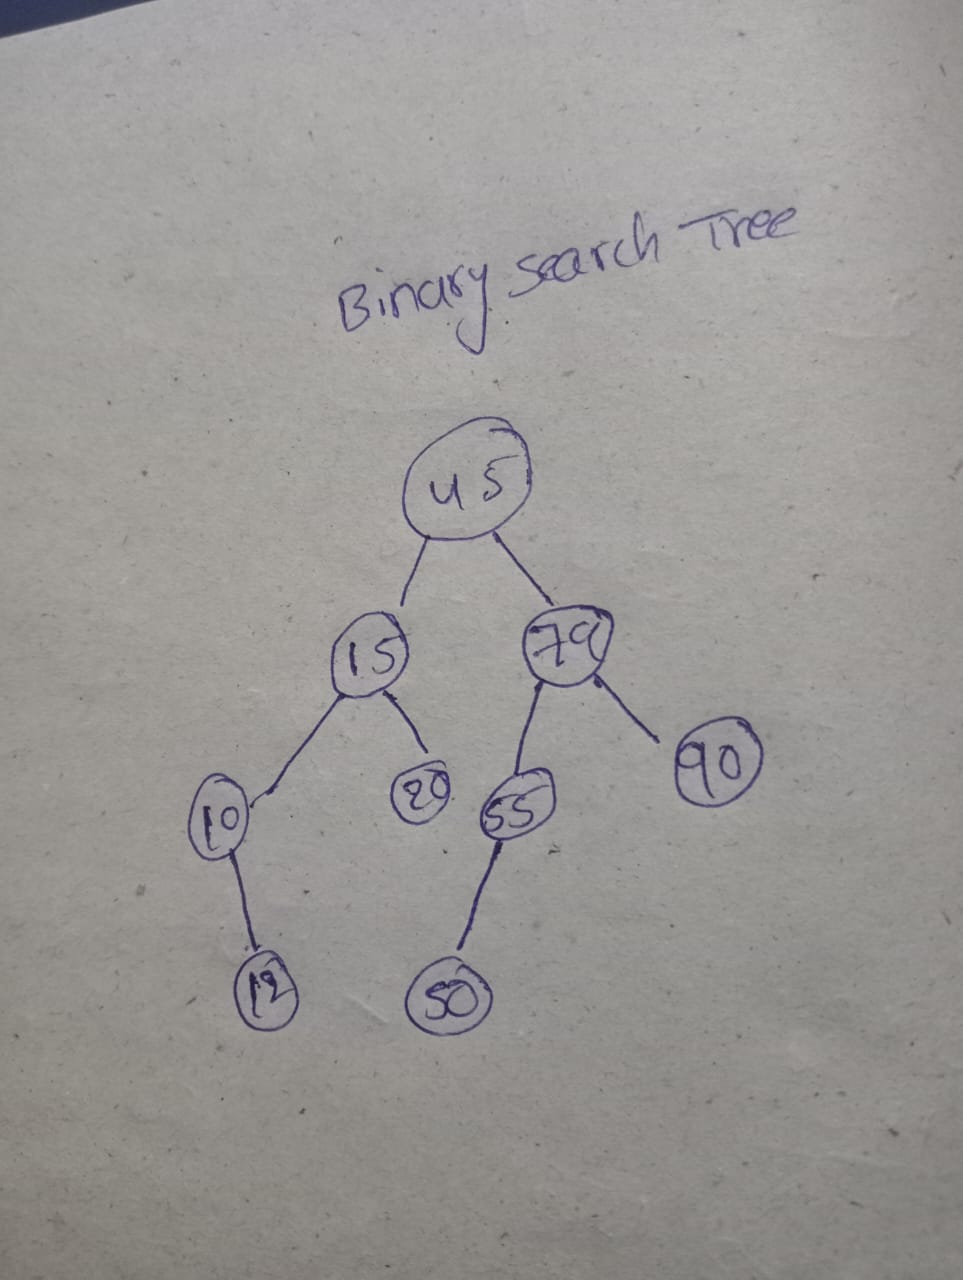 Binary search Tree
45
15 79
10 20 55 90
12 50